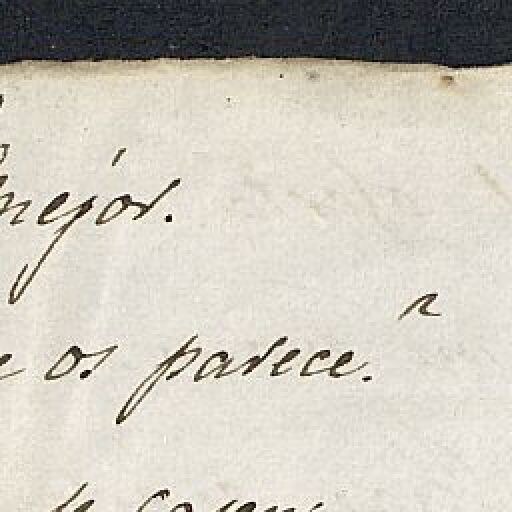 mejór.
e os parece.